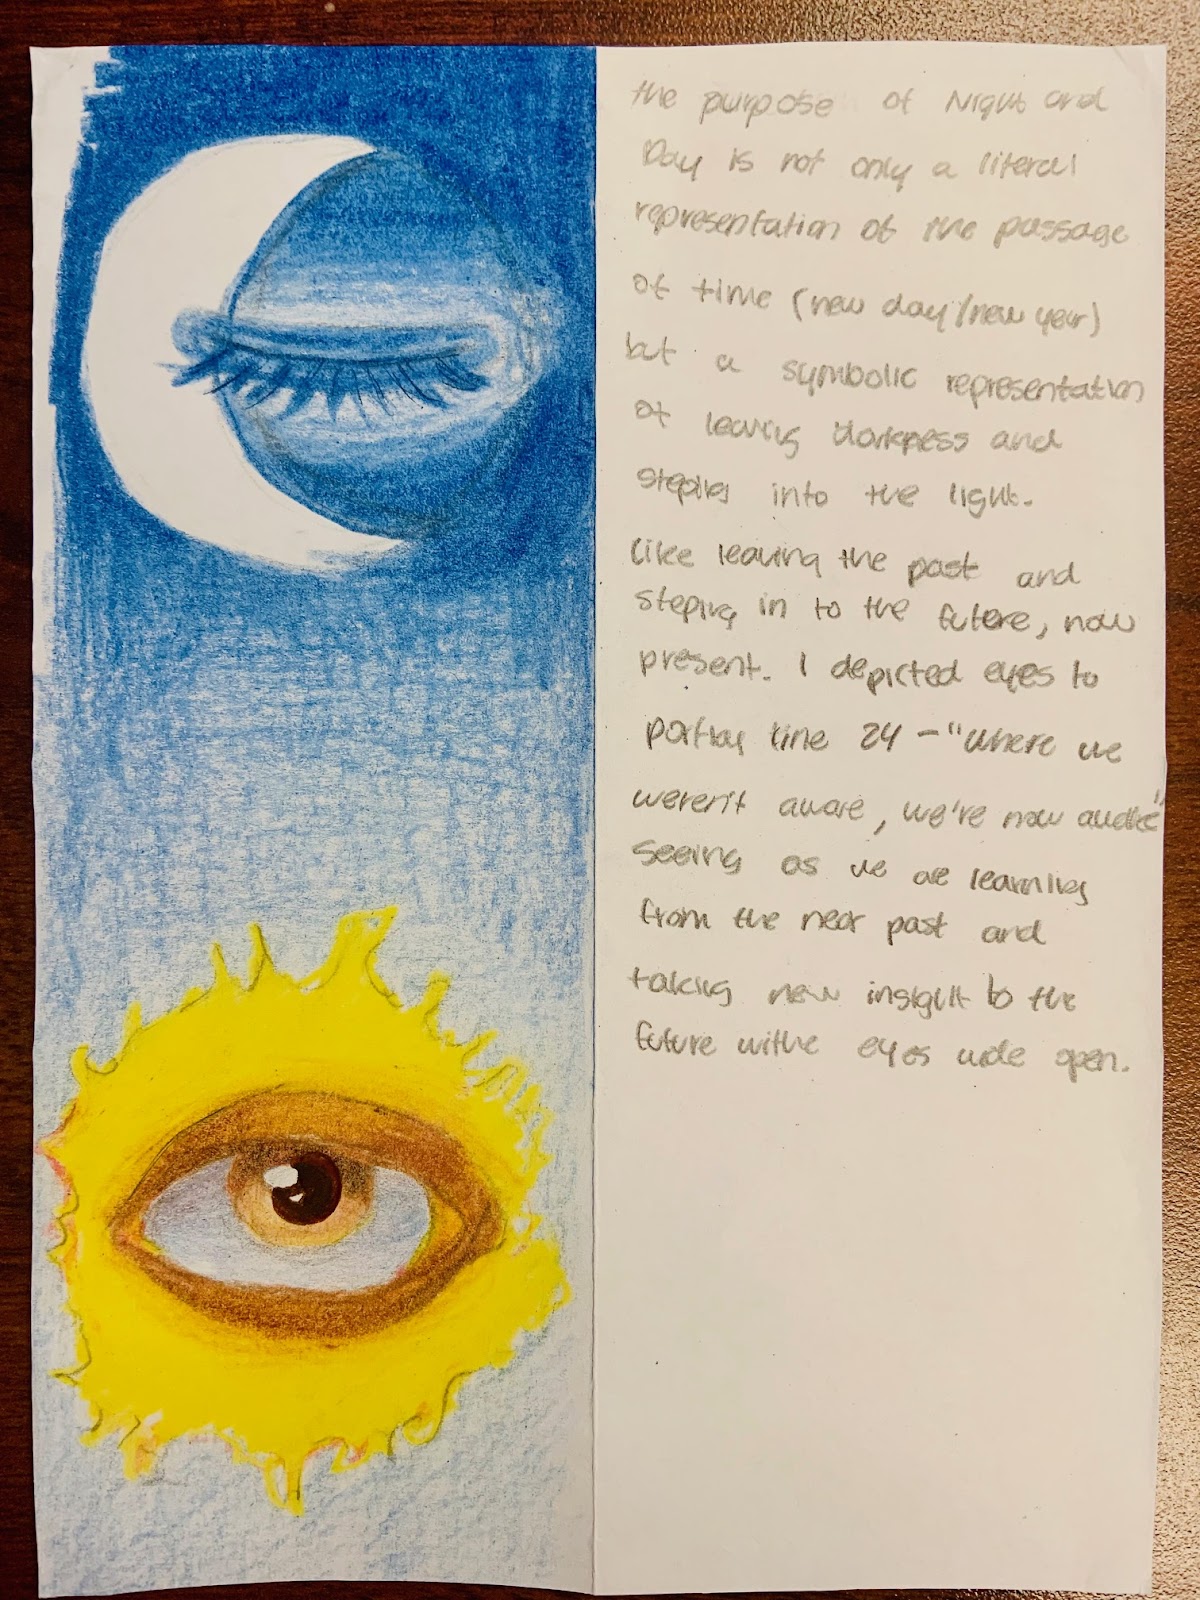 the purpose of Night and
Day is not only a literal
representation of the passage
of time (new day/new year)
but a symbolic representation
of leaving darkness and
steping into the light.
like leaving the past and
steping in to the future, now
present. I depicted eyes to
portray line 24 - "where we
weren't aware, we're now awake"
seeing as we are learning
from the near past and
taking new insight to the
future withe eyes wide open.